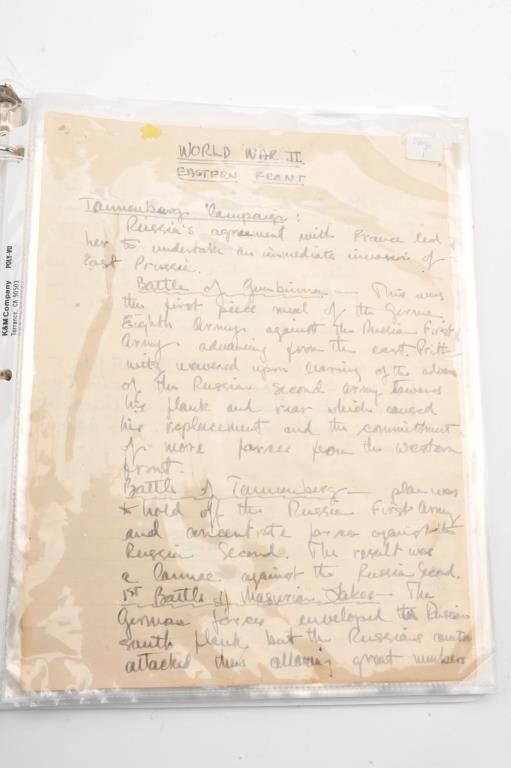 WORLD WAR II
EASTERN FRONT
Page
1
Tannenberg Campaign:
Russia's agreement with France led
her to undertake an immediate invasion of
East Prussia.
Battle of Gumbinnen – This was
the first piece meal of the German
Eighth Army against the Russian First
Army advancing from the east. Pritt-
witz wavered upon learning of the advance
of the Russian Second Army towards
his flank and rear which caused
his replacement and the commitment
of more forces from the western
front.
Battle of Tannenberg – plan was
to hold off the Russian First Army
and concentrate forces against the
Russian Second. The result was
a Cannae against the Russian Second.
1st Battle of Masurian Lakes – The
German forces enveloped the Russian
south flank but the Russians counter
attacked thus allowing great numbers
K&M Company POLY-VU
Torrance, CA 90503